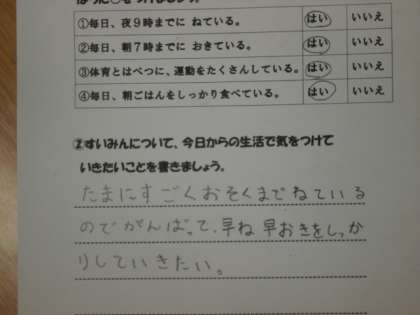 ①毎日、夜9時までに ねている。 はい いいえ
②毎日、朝7時までに おきている。 はい いいえ
③体育とはべつに、運動をたくさんしている。 はい いいえ
④毎日、朝ごはんをしっかり食べている。 はい いいえ
②すいみんについて、今日からの生活で気をつけて
いきたいことを書きましょう。
たまにすごくおそくまでねている
のでがんばって、早ね早おきをしっか
りしていきたい。